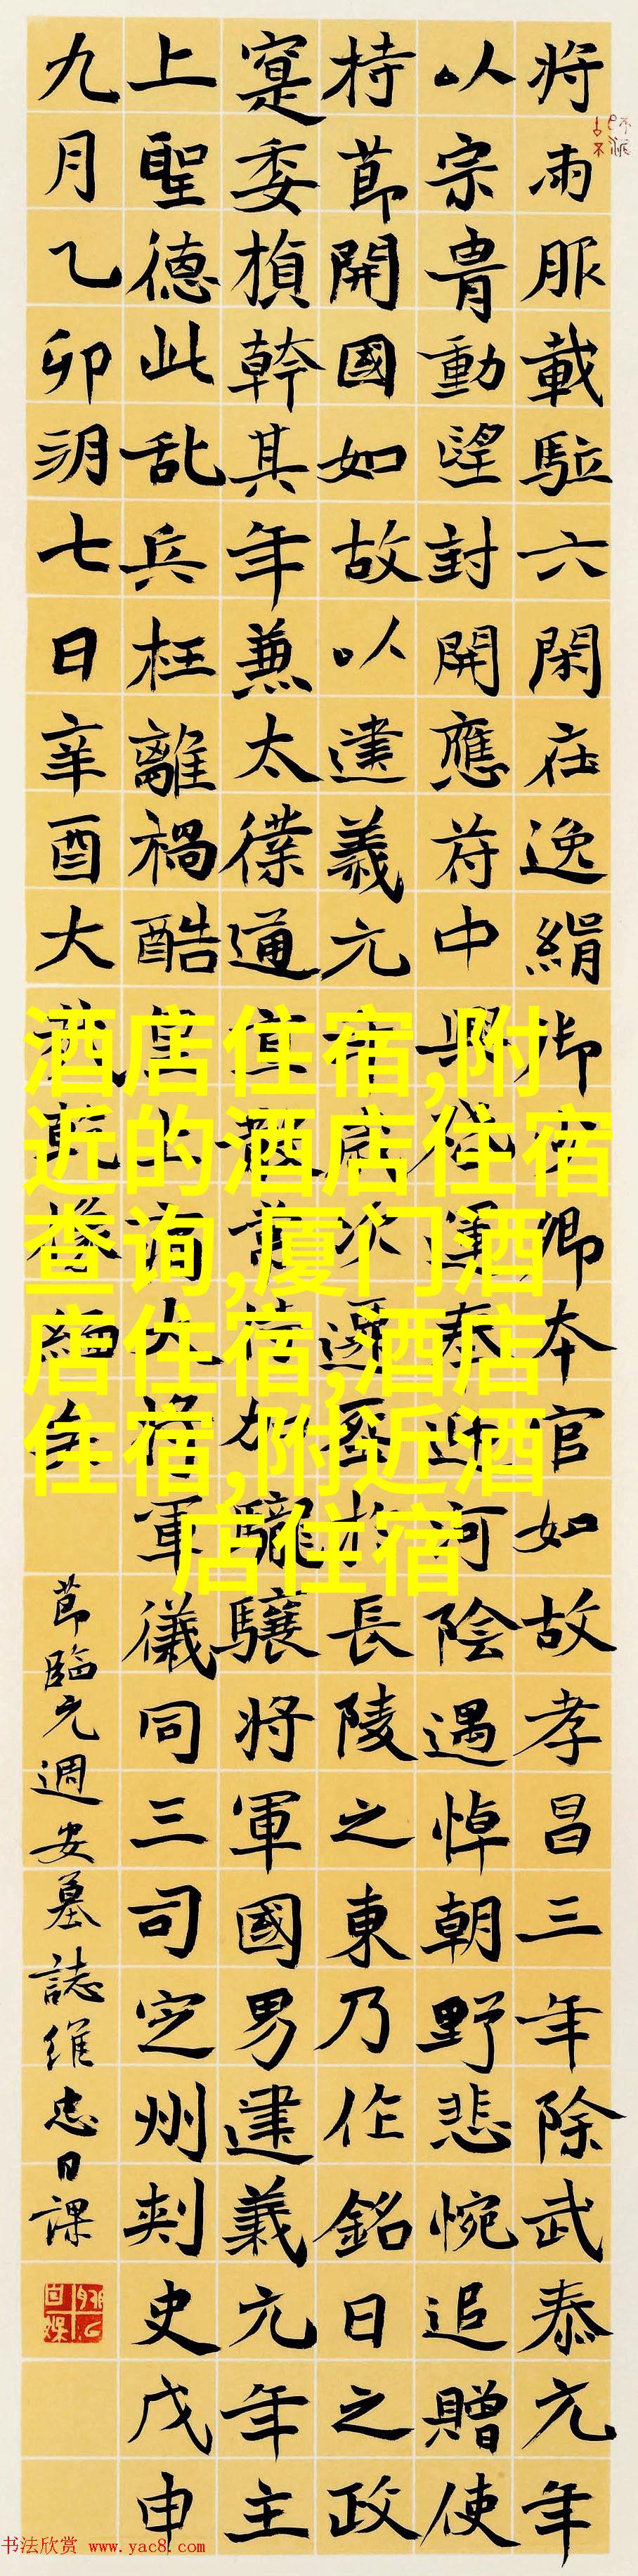 将雨服載駈六閑在逸絹御卿本官如故孝昌三年除武泰元年
以宗胄動望封開應符中興運奉迎河陰遇悼朝野悲惋追贈使
持節開國如故以建義元年歲次遷於長陵之東乃作銘曰之政
寔委楨幹其年兼太僕通直散常侍加龍驤将軍國男建義元年主
上聖德此乱兵枉離禍酷皇上大将軍儀同三司定州刺史戊申
九月乙卯朔七日辛酉大哉乾緬
節臨元週安墓誌維忠日課
酒店住宿,附
近的酒店住宿
查询,厦门酒
店住宿,酒店
住宿,附近酒
店住宿
书法欣赏 www.yac8.com